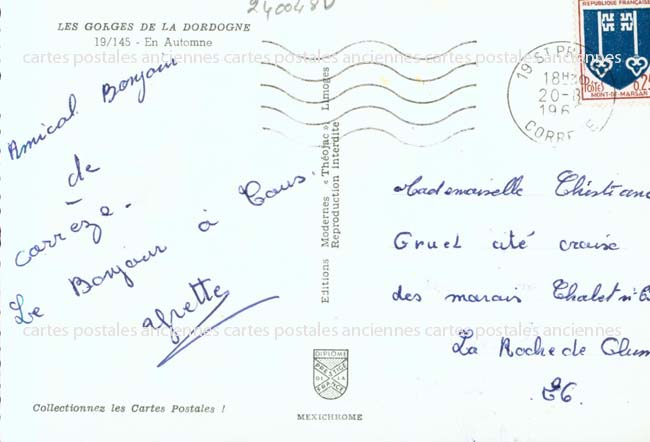 240048D
LES GORGES DE LA DORDOGNE
19/145 - En Automne
Amical Bonjour
de
Corrèze.
Le Bonjour à Tous.
Yvette
Collectionnez les Cartes Postales !
Editions Modernes « Théojac » Limoges
Reproduction interdite
DIPLOME
PRESTIGE
DE LA
FRANCE
MEXICHROME
REPUBLIQUE FRANÇAISE
POSTES 0,25
MONT-DE-MARSAN
19 ST PR
18H
20-
196
CORREZE
Mademoiselle Christian
Gruel cité croise
des marais Chalet n°
La Roche de Glun
26.
cartes postales anciennes cartes postales anciennes cartes postales anciennes
cartes postales anciennes cartes postales anciennes cartes postales anciennes